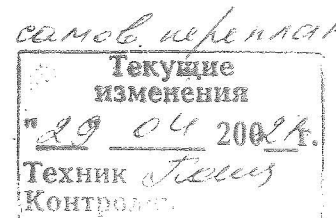 самов. переплан
Текущие
изменения
"29" 04 2002г.
Техник
Контроль